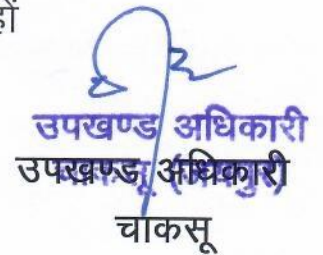 हों
उपखण्ड अधिकारी
उपखण्ड अधिकारी
चाकसू